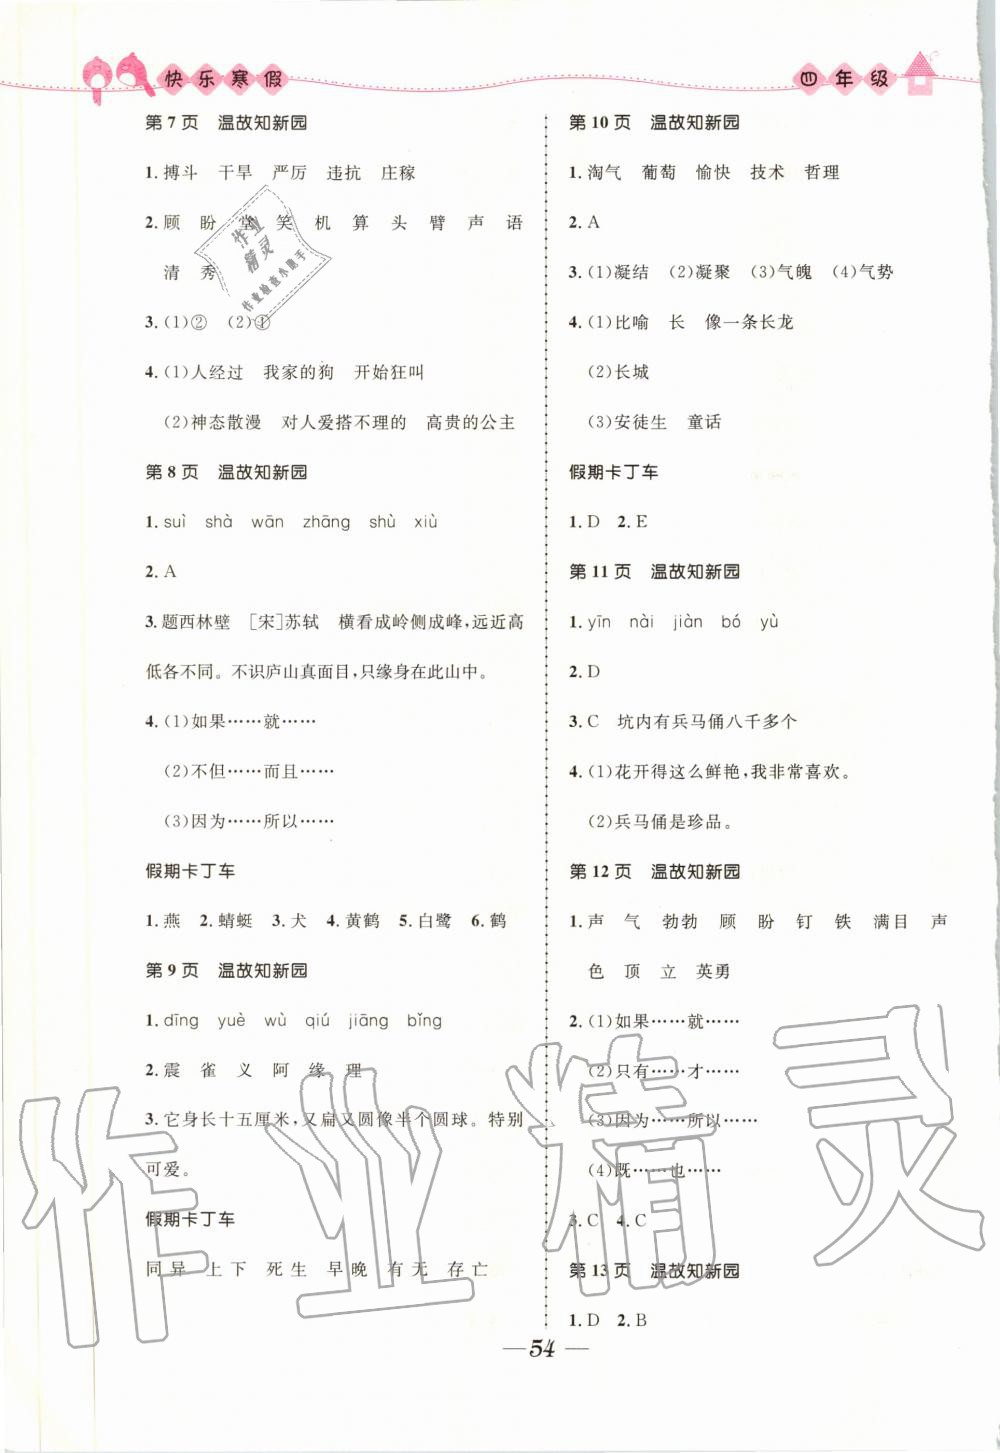 快乐寒假
四年级
第7页 温故知新园
1.搏斗 干旱 严厉 违抗 庄稼
2.顾 盼 堂 笑 机 算 头 臂 声 语
清 秀
3.(1)② (2)①
4.(1)人经过 我家的狗 开始狂叫
(2)神态散漫 对人爱搭不理的 高贵的公主
第8页 温故知新园
1.suì shà wān zhāng shù xiù
2.A
3.题西林壁 [宋]苏轼 横看成岭侧成峰,远近高
低各不同。不识庐山真面目,只缘身在此山中。
4.(1)如果……就……
(2)不但……而且……
(3)因为……所以……
假期卡丁车
1.燕 2.蜻蜓 3.犬 4.黄鹤 5.白鹭 6.鹤
第9页 温故知新园
1.dīng yuè wù qiú jiāng bǐng
2.震 雀 义 阿 缘 理
3.它身长十五厘米,又扁又圆像半个圆球。特别
可爱。
假期卡丁车
同异 上下 死生 早晚 有无 存亡
第10页 温故知新园
1.淘气 葡萄 愉快 技术 哲理
2.A
3.(1)凝结 (2)凝聚 (3)气魄 (4)气势
4.(1)比喻 长 像一条长龙
(2)长城
(3)安徒生 童话
假期卡丁车
1.D 2.E
第11页 温故知新园
1.yīn nài jiàn bó yù
2.D
3.C 坑内有兵马俑八千多个
4.(1)花开得这么鲜艳,我非常喜欢。
(2)兵马俑是珍品。
第12页 温故知新园
1.声 气 勃勃 顾 盼 钉 铁 满目 声
色 顶 立 英勇
2.(1)如果……就……
(2)只有……才……
(3)因为……所以……
(4)既……也……
3.C 4.C
第13页 温故知新园
1.D 2.B
54
作业
精灵
作业检查小助手
作业精灵